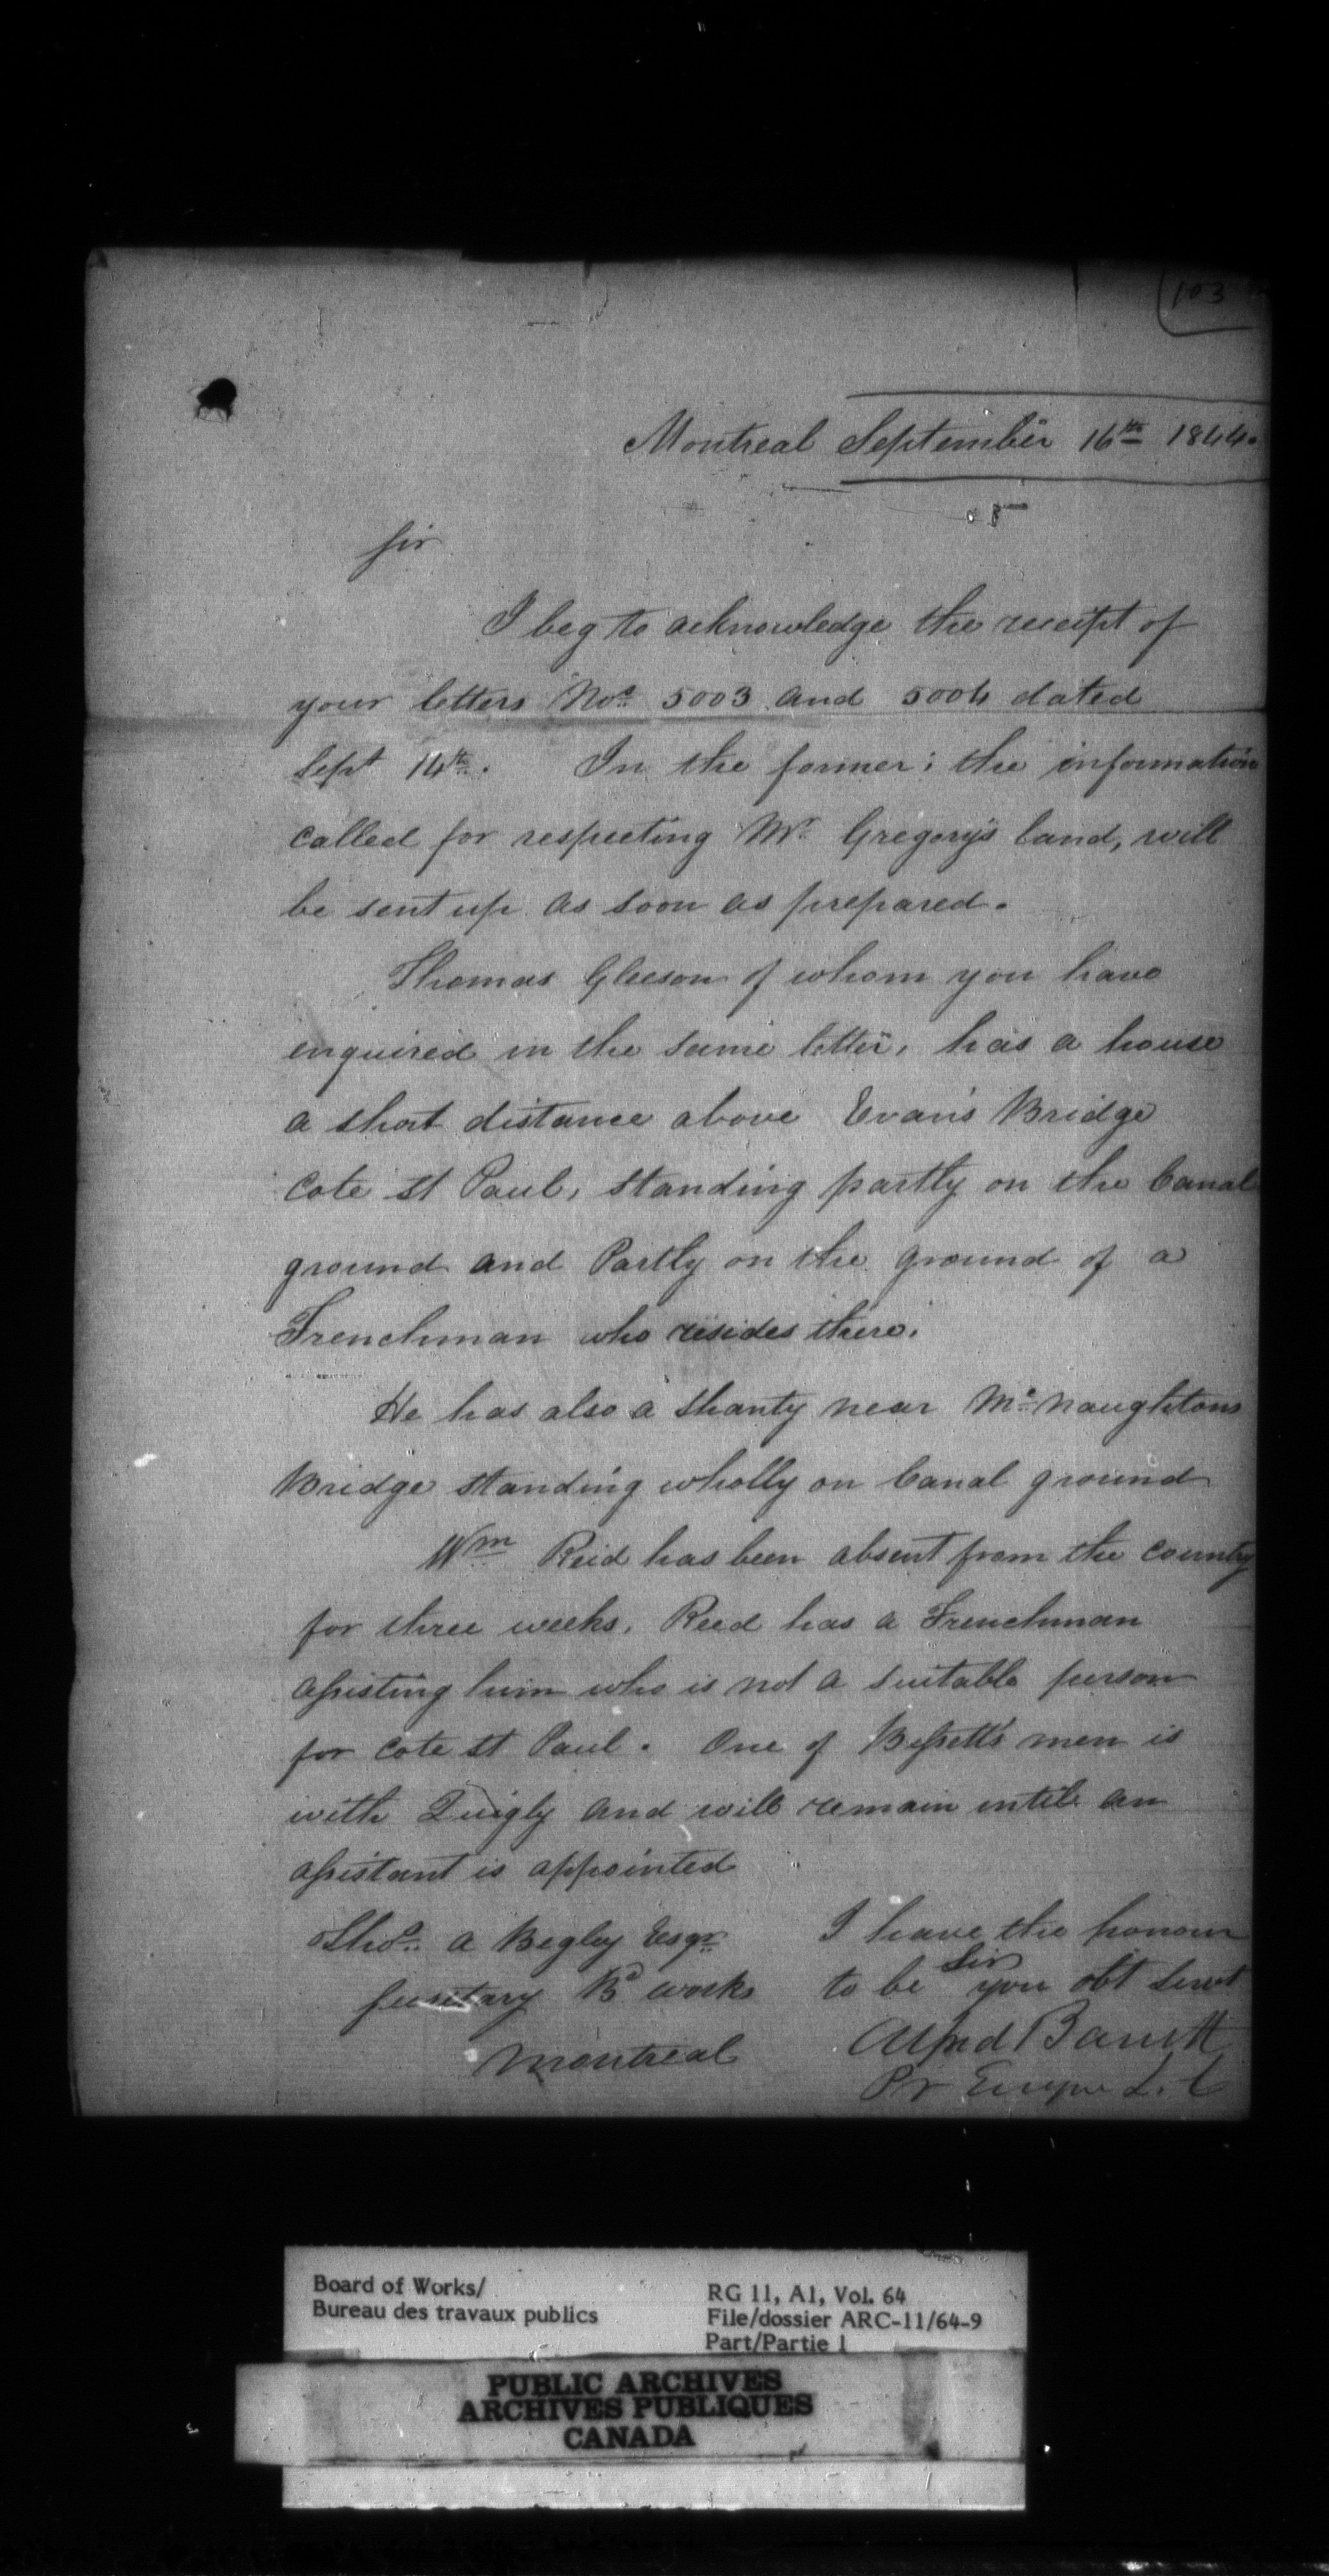 103
Montreal September 16th 1844.
Sir
I beg to acknowledge the receipt of
your letters Nos. 5003 and 5004 dated
Sept 14th. In the former; the information
called for respecting Mr. Gregory's land, will
be sent up as soon as prepared.
Thomas Gleeson of whom you have
enquired in the same letter, has a house
a short distance above Evans Bridge
Cote St Paul, standing partly on the Canal
ground and Partly on the ground of a
Frenchman who resides there.
He has also a Shanty near Mc naughtons
Bridge standing wholly on Canal ground
Wm Reid has been absent from the country
for three weeks. Reed has a Frenchman
assisting him who is not a suitable person
for Cote St Paul. One of Bessett's men is
with Quigly and will remain until an
assistant is appointed
Thos. A Begley Esqr. I have the honour
Secretary Bd works to be Sir your obt Servt
Montreal Alfred Barrett
L. C
Board of Works/
Bureau des travaux publics
RG 11, A1, Vol. 64
File/dossier ARC-11/64-9
Part/Partie 1
PUBLIC ARCHIVES
ARCHIVES PUBLIQUES
CANADA